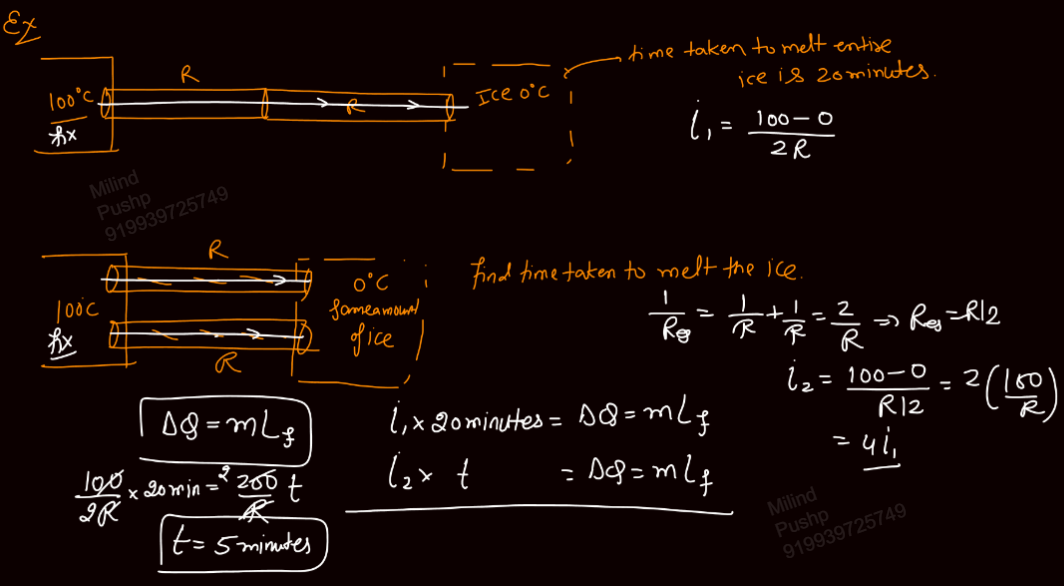 Ex
time taken to melt entire
ice is 20 minutes.
R
100°C
fix
R
Ice 0°C
i₁ = (100 - 0)/(2R)
Milind
Pushp
919939725749
R
100°C
fix
R
0°C
same amount
of ice
find time taken to melt the ice.
1/Req = 1/R + 1/R = 2/R ⇒ Req = R/2
i₂ = (100 - 0)/(R/2) = 2(100/R)
= 4i₁
ΔQ = mLf
i₁ × 20 minutes = ΔQ = mLf
i₂ × t = ΔQ = mLf
100/2R × 20 min = 2 200/R t
t = 5 minutes
Milind
Pushp
919939725749